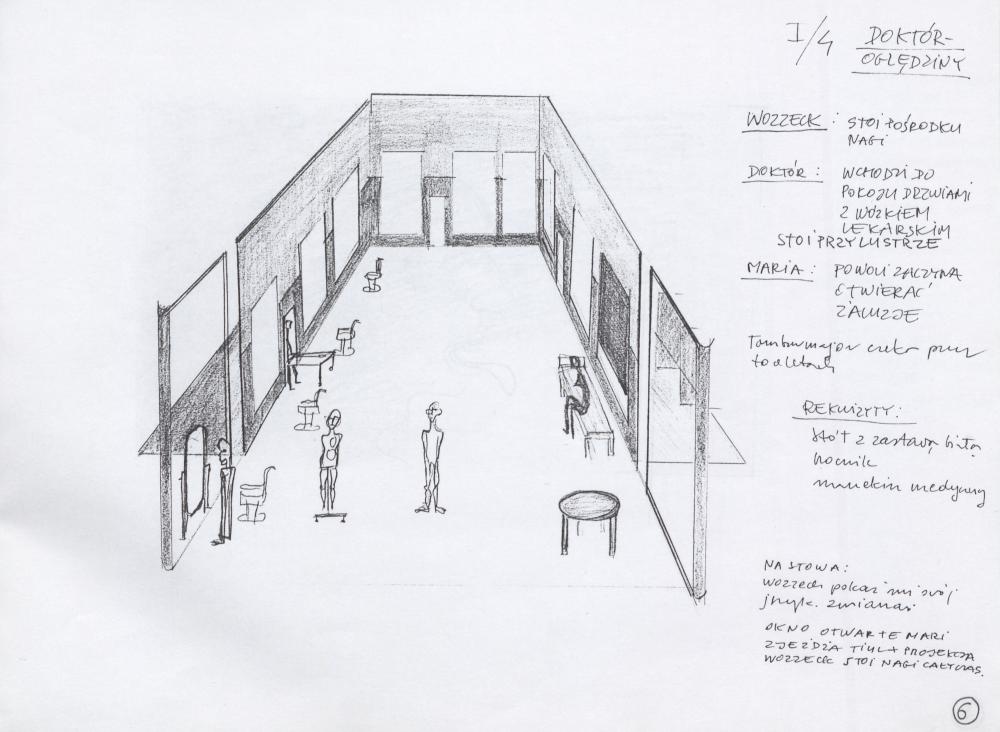 I/4
DOKTÓR-
OGLĘDZINY
WOZZECK : STOI POŚRODKU
NAGI
DOKTÓR : WCHODZI DO
POKOJU DRZWIAMI
Z WÓZKIEM
LEKARSKIM
STOI PRZY LUSTRZE
MARIA : POWOLI ZACZYNA
OTWIERAĆ
ŻALUZJE
Tamburmajor czeka przy
toaletach
REKWIZYTY :
stół z zastawą białą
nocnik
manekin medyczny
NA SŁOWA :
Wozzeck pokaż mi swój
język. zmiana
OKNO OTWARTE MARI
ZJEŻDŻA TIUL + PROJEKCJA
WOZZECK STOI NAGI CAŁY CZAS.
6